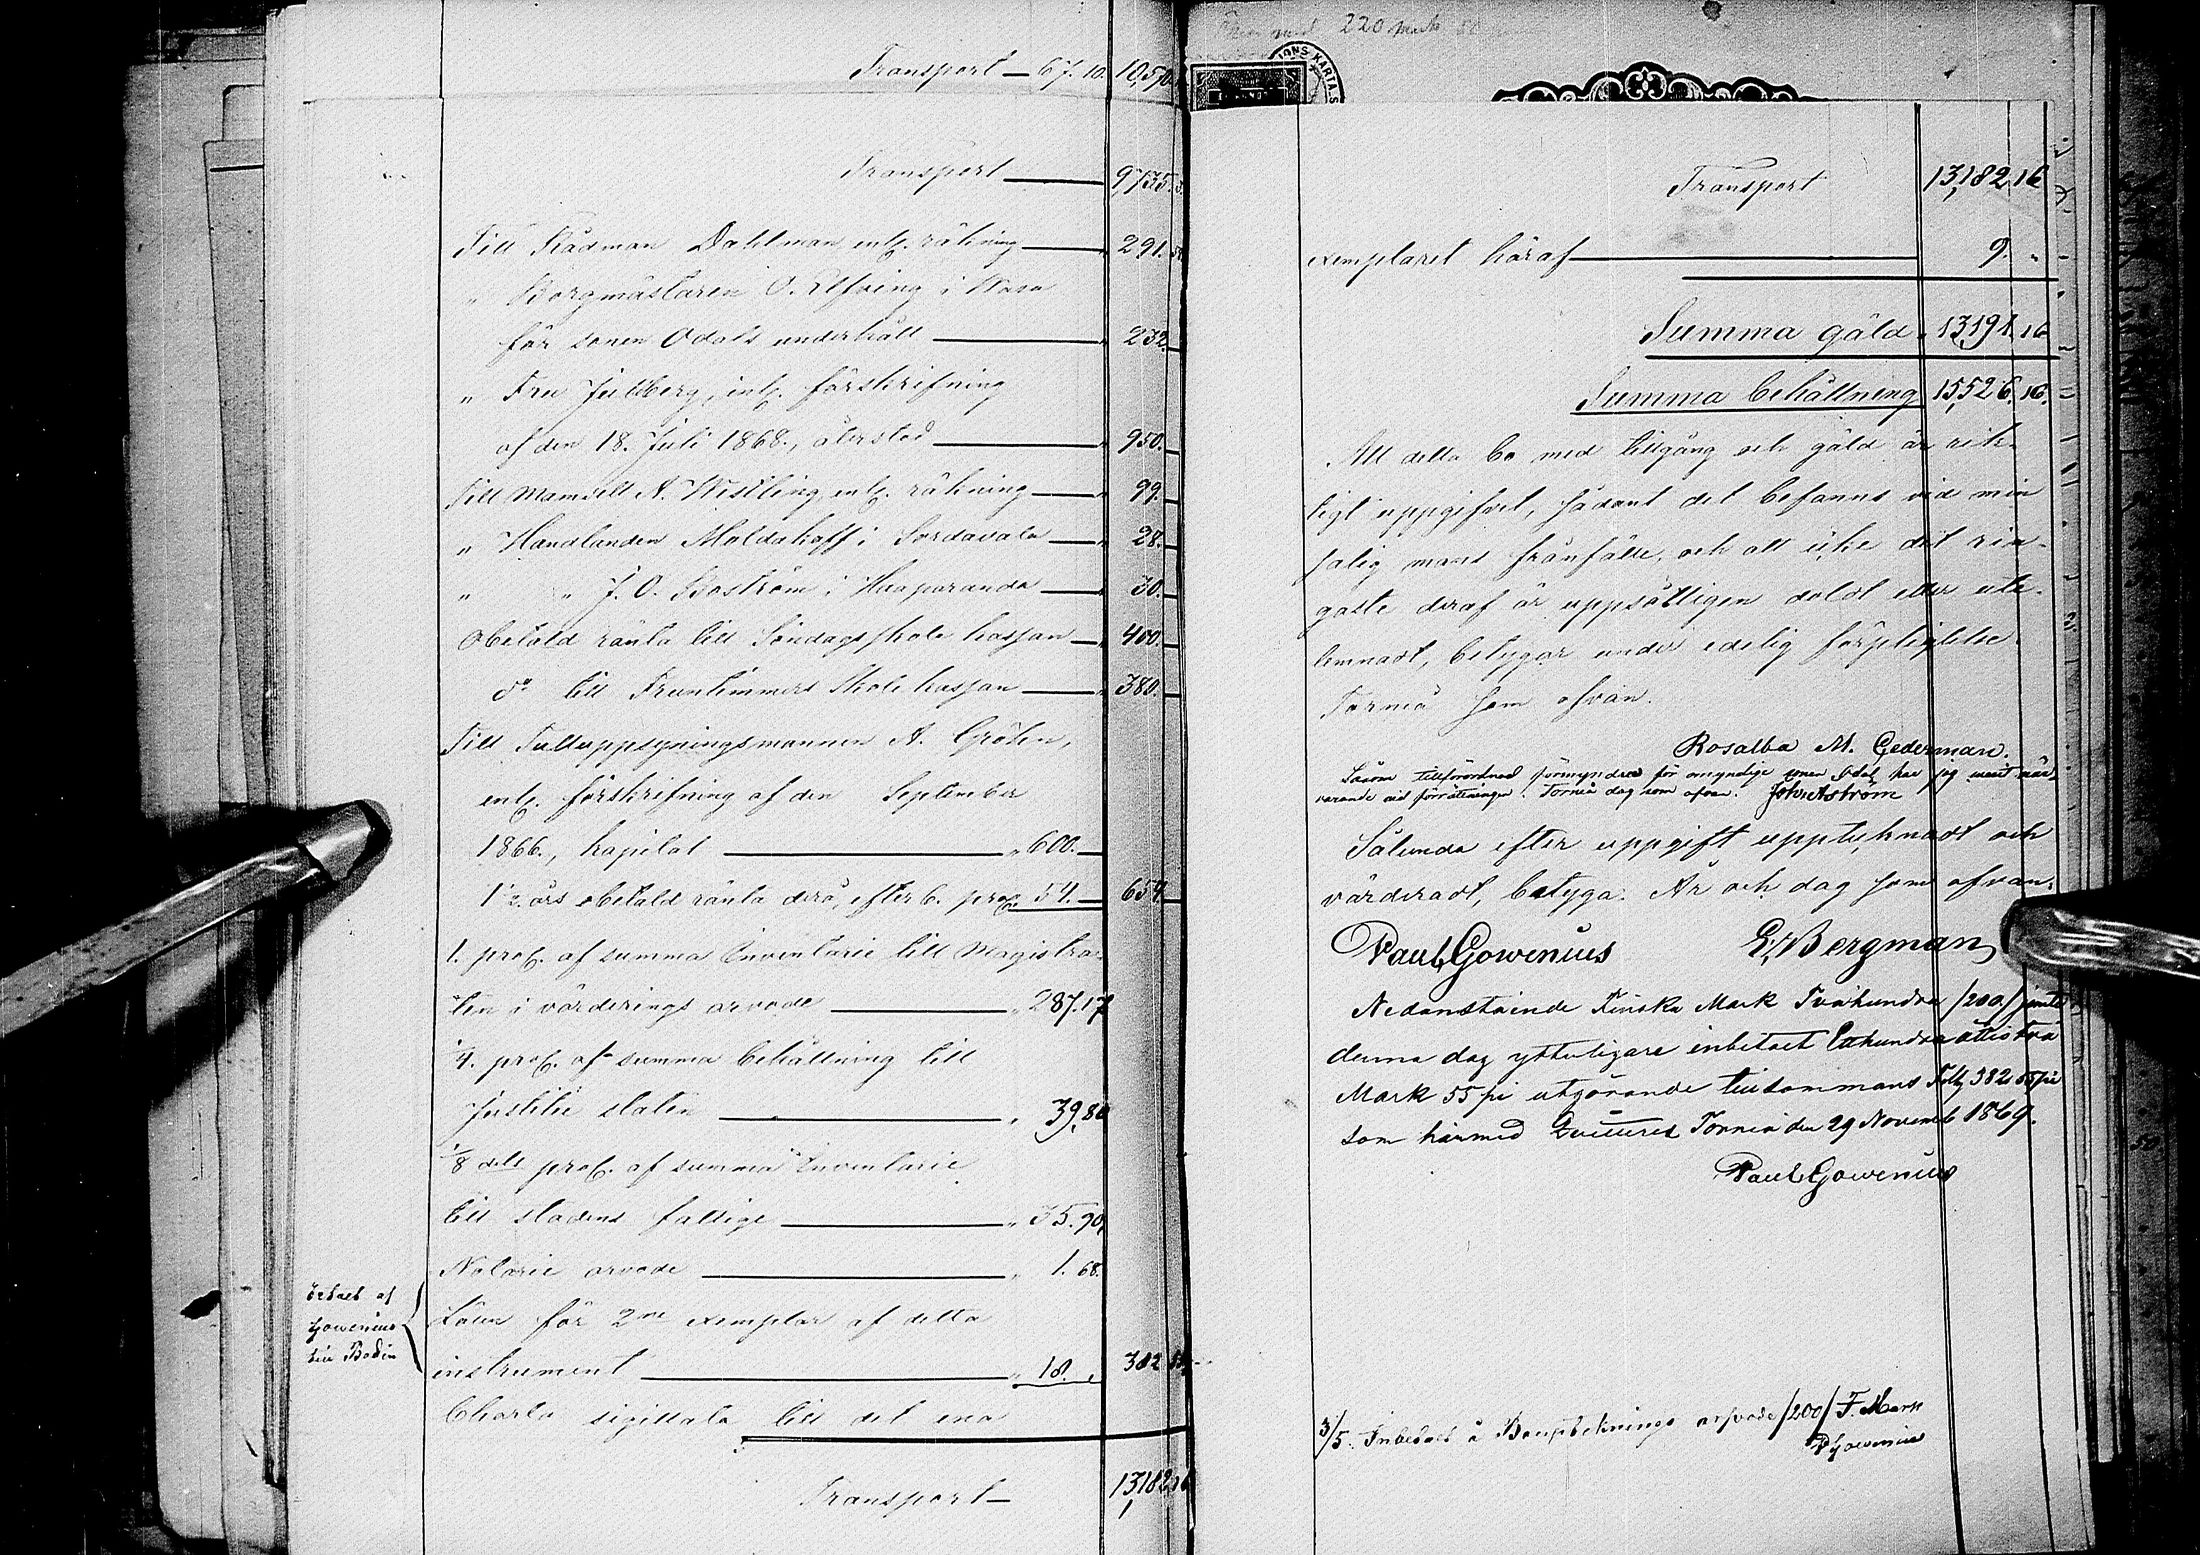 Transport — 67. 10. 10,570
Transport — 9,735.
Till Rådman Dahlman enl. räkning — 291. 50
" Borgmästaren O. Elfving i Wasa
för sonen Odals underhåll — 232.
" Fru Jullberg, enl. förskrifning
af den 18. Juli 1868., återstod — 950.
Till Mamsell A. Westling enl. räkning — 99.
" Handlanden Moldakoff i Sordavala — 28.
" " J. O. Boström i Haaparanda — 30.
Obetald ränta till Söndagsskole kassan — 400.
d:o till Fruntimmers Skole kassan — 380.
Till Tulluppsyningsmannen A. Gröhn,
enl. förskrifning af den September
1866., kapital — " 600.
1½ års obetald ränta derå, efter 6. proC. 54. — 654.
1. proC. af summa Inventarie till Magistra-
ten i värderings arvode — " 287. 17
¼. proC. af summa behållning till
Justitie staten — " 39, 80
1/8 dels proC. af summa Inventarie
till stadens fattige — " 35. 90,
Notarie arvode — " 1. 68.
Lösen för 2ne exemplar af detta
instrument — " 18. 382 55
betalt af
Gowenius
till Bodin
Charta sigillata till det ena
Transport — 13,182 16
220 mark 50
Transport 13,182 16
exemplaret häraf — 9. "
Summa gäld " 13,191. 16
Summa behållning 15,526. 16.
Att detta bo med tillgång och gäld är rik-
tigt uppgifvet, sådant det befanns vid min
salig mans frånfälle, och att icke det rin-
gaste deraf är uppsåtligen doldt eller ute-
lemnadt, betygar under edelig förpligtelse.
Torneå som ofvan.
Rosalba M. Cederman.
Såsom tillförordnad förmyndare för omyndige sonen Odal har jag varit när-
varande vid förrättningen. Torneå dag som ofvan. Joh. Åström
Sålunda efter uppgift upptecknadt och
värderadt, betyga. År och dag som ofvan.
Paul Gowenius E. Bergman
Nedanstående Finska Mark Tvåhundra /200/ jemte
denna dag ytterligare inbetalt Etthundra åttiotvå
Mark 55 pi utgörande tillsammans Fmk 382 55 pi
som härmed Qvitteres Torneå den 29 Novemb 1869.
Paul Gowenius
3/5. Inbetalt å Bouptecknings arfvode /200/ F. Mark
PGowenius